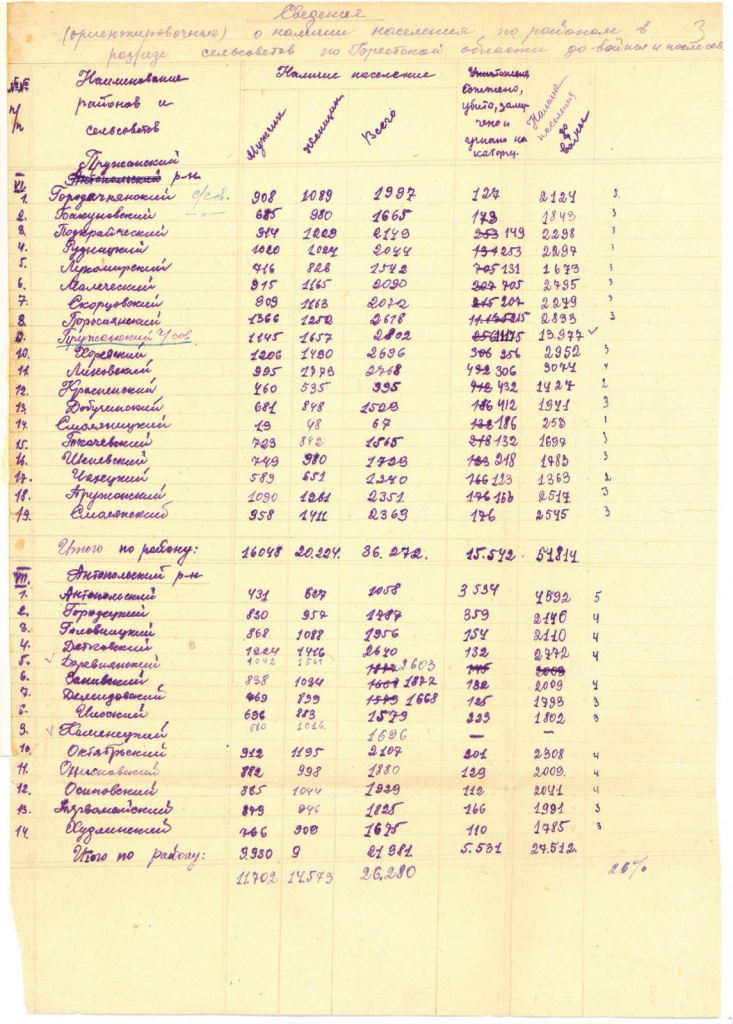 Сведения
(ориентировочные) о наличии населения по районам в 3
разрезе сельсоветов по Брестской области до войны и после
№№ п/п Наименование районов и сельсоветов Наличие население Мужчин Женщин Всего Уничтожено, сожжено, убито, замучено и угнано на каторгу. населения до войны
Пружанский
VI Антопольский р-н
1. Городечнянский с/сов. 908 1089 1997 127 2124 3
2. Бакуновский -"- 685 980 1665 178 1843 3
3. 914 1229 2149 253 149 2298 3
4. Рудницкий 1020 1024 2044 253 2297
5. 716 826 1542 705 131 1673 3
6. Малечский 915 1165 2090 207 705 2795 3
7. Скорцовский 909 1163 2072 215 207 2279 3
8. 1366 1252 2618 215 2833 3
9. Пружанский г/сов 1145 1657 2802 11175 13.977 ✓
10. Хоревский 1206 1490 2696 306 256 2952 3
11. Линовский 995 1773 2768 432 306 3074 4
12. 460 535 995 412 432 1427 2
13. 681 848 1529 186 412 1941 3
14. 19 48 67 132 186 253 1
15. 723 842 1565 218 132 1697 3
16. Шеневский 749 980 1729 218 1783 3
17. 589 651 1240 166 123 1363 2
18. 1090 1261 2351 176 166 2517 3
19. Смолянский 958 1411 2369 176 2545 3
Итого по району: 16048 20.224. 36.272. 15.542 51814
VII. Антопольский р-н
1. Антопольский 431 627 1058 3534 4592 5
2. Городецкий 830 957 1787 359 2146 4
3. Головицкий 868 1088 1956 154 2110 4
4. Детковский 1224 1416 2640 132 2772 4
5. ✓ 1042 1561 2603 2009
6. 838 1034 1877 132 2009 4
7. Демидовский 769 899 1579 1668 125 1793 3
8. 696 883 1579 223 1802 3
9. ✓ Каменецкий 680 1016 1696 — —
10. Октябрьский 912 1195 2107 201 2308 4
11. 882 998 1880 129 2009. 4
12. Осиповский 885 1044 1929 112 2041 4
13. Первомайский 879 946 1825 166 1991 3
14. Худлинский 766 909 1675 110 1785 3
Итого по району: 9.980 9 21981. 5.531 27.512.
11.702 14.573 26.280 26%